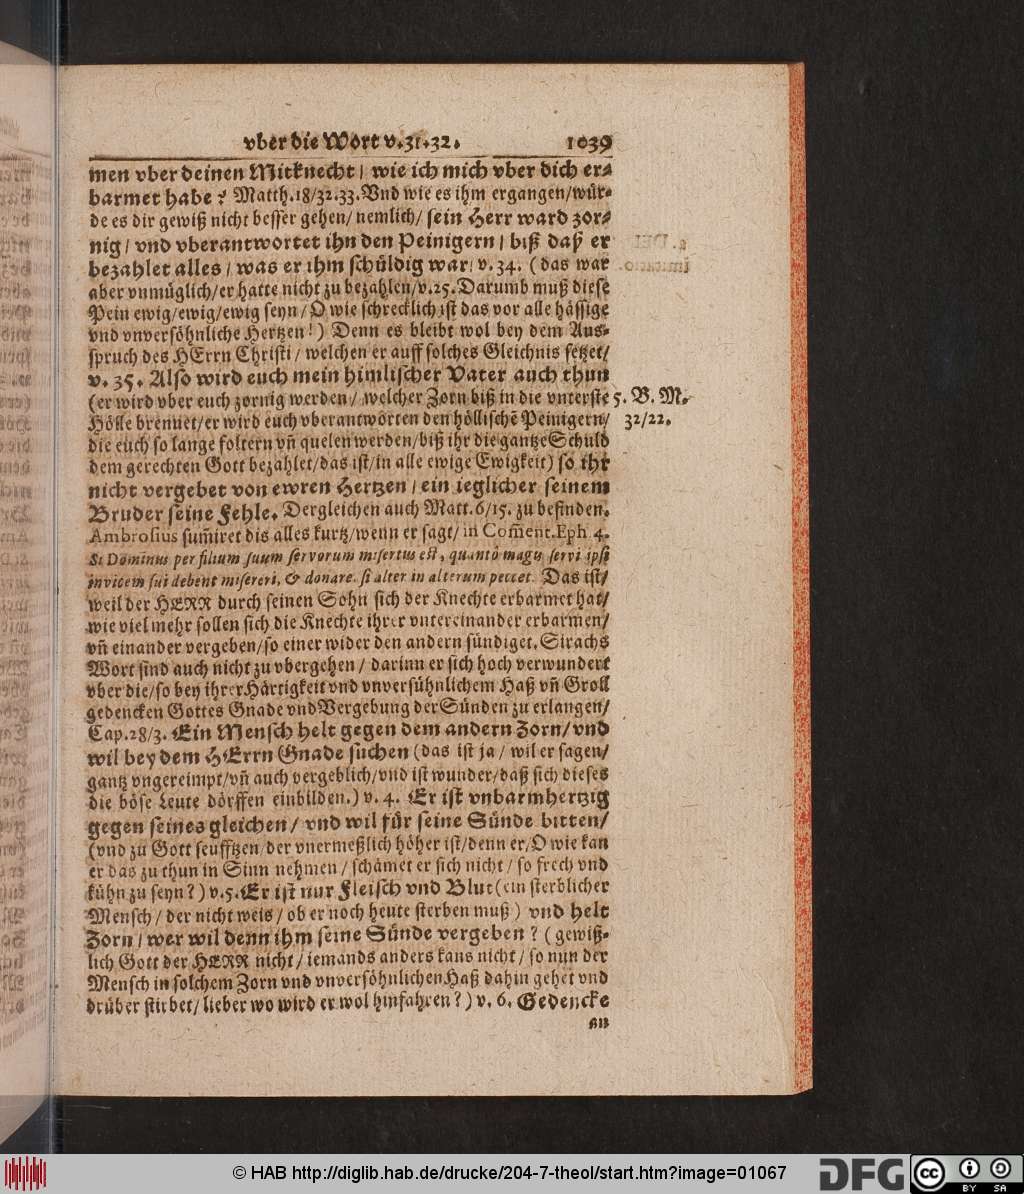 vber die Wort v.31.32. 1039
men vber deinen Mitknecht / wie ich mich vber dich er-
barmet habe ? Matth.18/32.33. Vnd wie es ihm ergangen/wür-
de es dir gewiß nicht besser gehen/ nemlich/ sein Herr ward zor-
nig / vnd vberantwortet ihn den Peinigern / biß daß er
bezahlet alles / was er ihm schüldig war/ v. 34. ( das war
aber vnmüglich/er hatte nicht zu bezahlen/v.25. Darumb muß diese
Pein ewig/ewig/ewig seyn / O wie schrecklich ist das vor alle hässige
vnd vnversöhnliche Hertzen! ) Denn es bleibt wol bey dem Aus-
spruch des HErrn Christi / welchen er auff solches Gleichnis setzet/
v. 35. Also wird euch mein himlischer Vater auch thun
(er wird vber euch zornig werden / welcher Zorn biß in die vnterste
5. B. M.
Hölle brennet/er wird euch vberantwörten den höllischē Peinigern/
32/22.
die euch so lange foltern vñ quelen werden/biß ihr die gantze Schuld
dem gerechten Gott bezahlet/das ist/in alle ewige Ewigkeit) so ihr
nicht vergebet von ewren Hertzen / ein ieglicher seinem
Bruder seine Fehle. Dergleichen auch Matt.6/15. zu befinden.
Ambrosius sum̃iret dis alles kurtz/wenn er sagt/ in Com̃ent.Eph 4.
Si Dominus per filium suum servorum misertus est, quantò magis servi ipsi
invicem sui debent misereri, & donare, si alter in alterum peccet. Das ist/
weil der HERR durch seinen Sohn sich der Knechte erbarmet hat/
wie viel mehr sollen sich die Knechte ihrer vntereinander erbarmen/
vñ einander vergeben/so einer wider den andern sündiget. Sirachs
Wort sind auch nicht zu vbergehen / darinn er sich hoch verwundert
vber die/so bey ihrer Härtigkeit vnd vnversühnlichem Haß vñ Groll
gedencken Gottes Gnade vnd Vergebung der Sünden zu erlangen/
Cap.28/3. Ein Mensch helt gegen dem andern Zorn/ vnd
wil bey dem HErrn Gnade suchen (das ist ja / wil er sagen/
gantz vngereimpt/vñ auch vergeblich/vnd ist wunder/daß sich dieses
die böse Leute dörffen einbilden.) v. 4. Er ist vnbarmhertzig
gegen seines gleichen / vnd wil für seine Sünde bitten/
(vnd zu Gott seufftzen/der vnermeßlich höher ist/denn er/O wie kan
er das zu thun in Sinn nehmen / schämet er sich nicht / so frech vnd
kühn zu seyn? ) v.5. Er ist nur Fleisch vnd Blut (ein sterblicher
Mensch / der nicht weis / ob er noch heute sterben muß ) vnd helt
Zorn / wer wil denn ihm seine Sünde vergeben ? ( gewiß-
lich Gott der HERR nicht / iemands anders kans nicht / so nun der
Mensch in solchem Zorn vnd vnversöhnlichen Haß dahin gehet vnd
drüber stirbet/ lieber wo wird er wol hinfahren? ) v. 6. Gedencke
an
© HAB http://diglib.hab.de/drucke/204-7-theol/start.htm?image=01067
DFG
cc BY SA